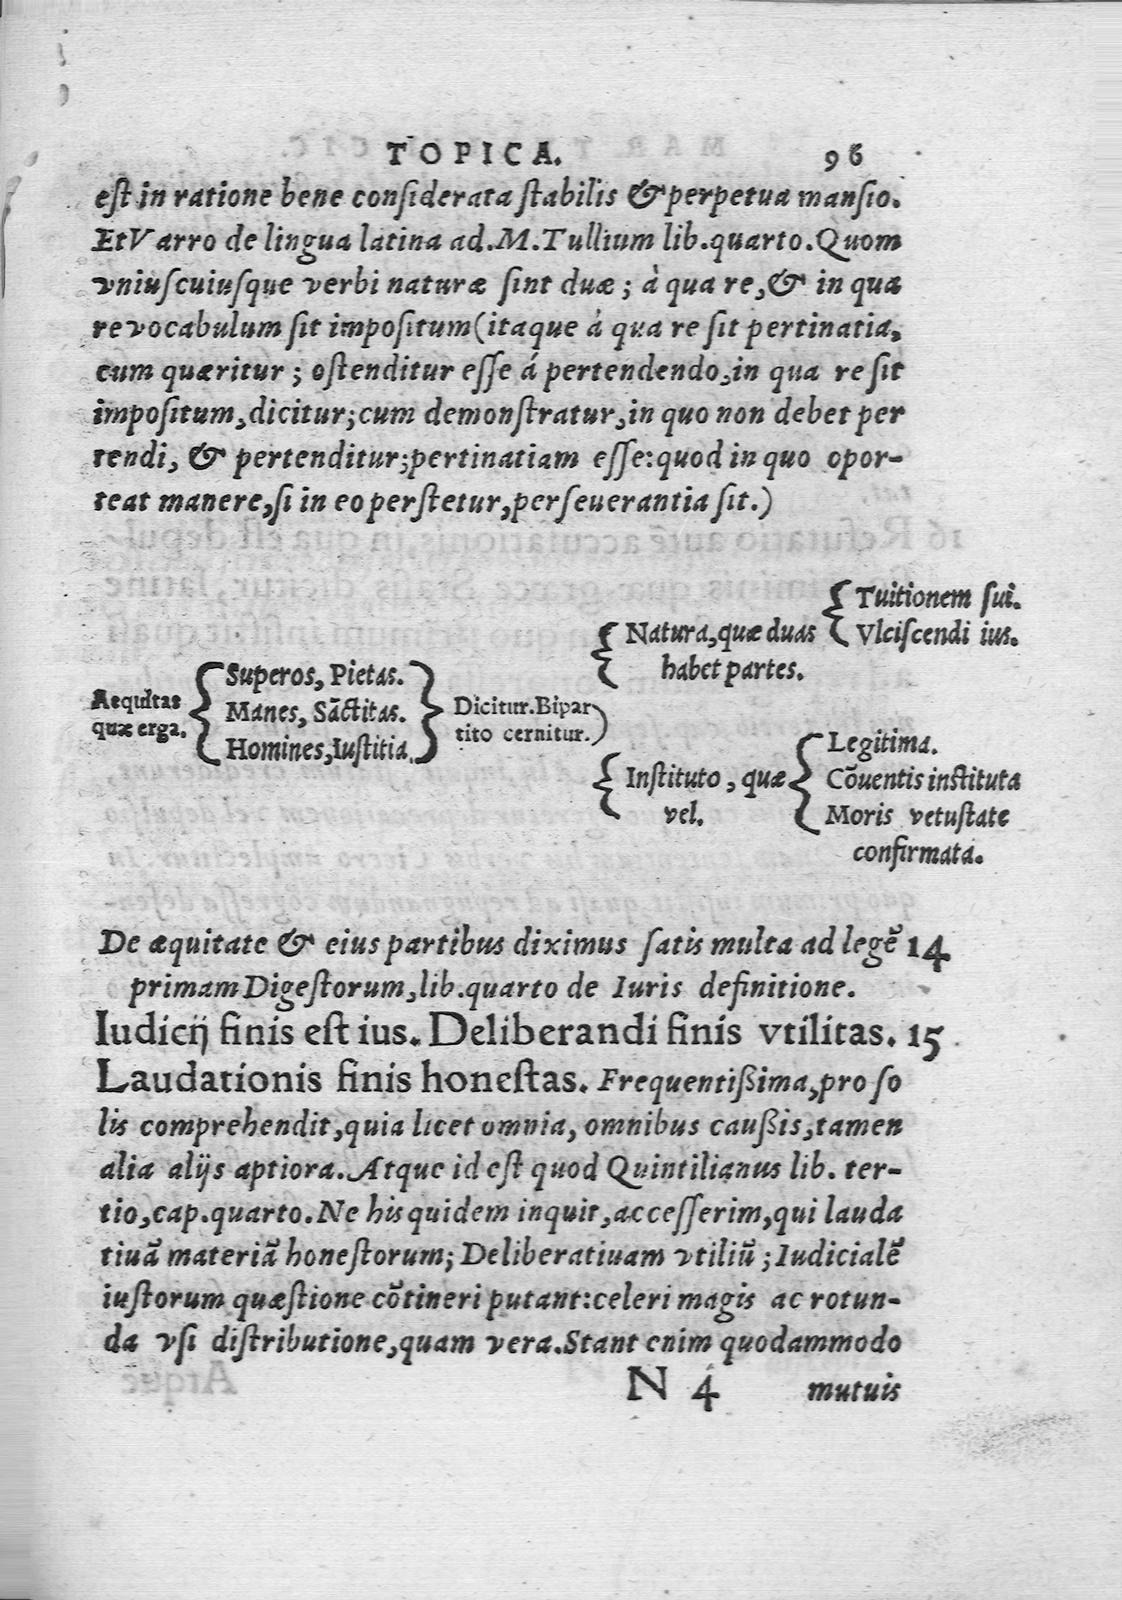 TOPICA. 96
est in ratione bene considerata stabilis & perpetua mansio.
Et Varro de lingua latina ad. M. Tullium lib. quarto. Quom
vniuscuiusque verbi naturæ sint duæ; à qua re, & in qua
re vocabulum sit impositum (itaque á qua re sit pertinatia,
cum quæritur; ostenditur esse á pertendendo, in qua re sit
impositum, dicitur; cum demonstratur, in quo non debet per
tendi, & pertenditur; pertinatiam esse: quod in quo opor-
teat manere, si in eo perstetur, perseuerantia sit.)
Aequitas
quæ erga.
Superos, Pietas.
Manes, Sāctitas.
Homines, Iustitia.
Dicitur. Bipar
tito cernitur.
Natura, quæ duas
habet partes.
Tuitionem sui.
Vlciscendi ius.
Instituto, quæ
vel.
Legitima.
Cōuentis instituta
Moris vetustate
confirmata.
De æquitate & eius partibus diximus satis multa ad legē 14
primam Digestorum, lib. quarto de Iuris definitione.
Iudicij finis est ius. Deliberandi finis vtilitas. 15
Laudationis finis honestas. Frequentißima, pro so
lis comprehendit, quia licet omnia, omnibus caußis, tamen
alia alijs aptiora. Atque id est quod Quintilianus lib. ter-
tio, cap. quarto. Ne his quidem inquit, accesserim, qui lauda
tiuā materiā honestorum; Deliberatiuam vtiliū; Iudicialē
iustorum quæstione cōtineri putant: celeri magis ac rotun-
da vsi distributione, quam vera. Stant enim quodammodo
N 4 mutuis